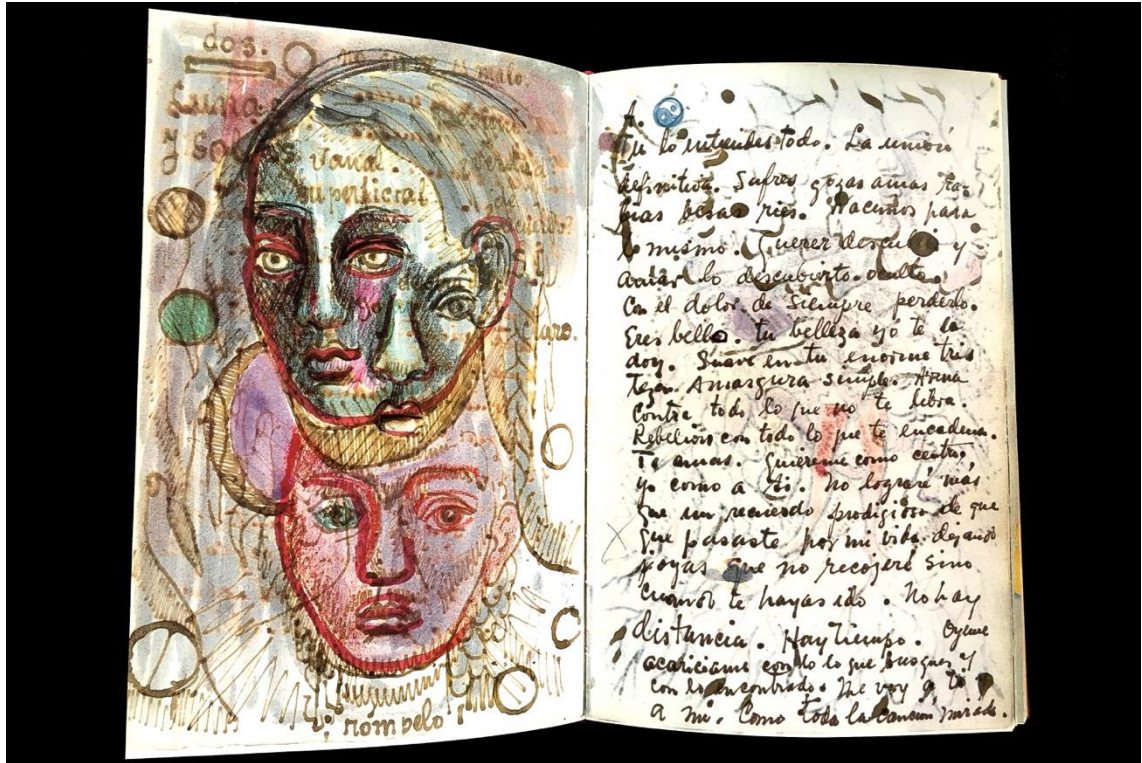 dos.
Lunas
y Soles
Vanal.
superficial
claro.
rompelo
Tu lo entiendes todo. La unión
definitiva. Sufres gozas amas ra-
bias besas ries. Nacimos para
lo mismo. Querer descubrir y
amar lo descubierto. oculto.
Con el dolor de siempre perderlo.
Eres bella. tu belleza yo te la
doy. Suave en tu enorme tris
teza. Amargura simple. Arma
contra todo lo que no te libra.
Rebelion con todo lo que te encadena.
Te amas. quiereme como centro,
yo como a ti. No lograré más
que un recuerdo prodigioso de que
que pasaste por mi vida dejando
joyas que no recojeré sino
cuando te hayas ido. No hay
distancia. Hay tiempo. Oyeme
acariciame con lo lo que busques y
con lo encontrado. Me voy a ti y
a mi. Como toda la cancion mirada.